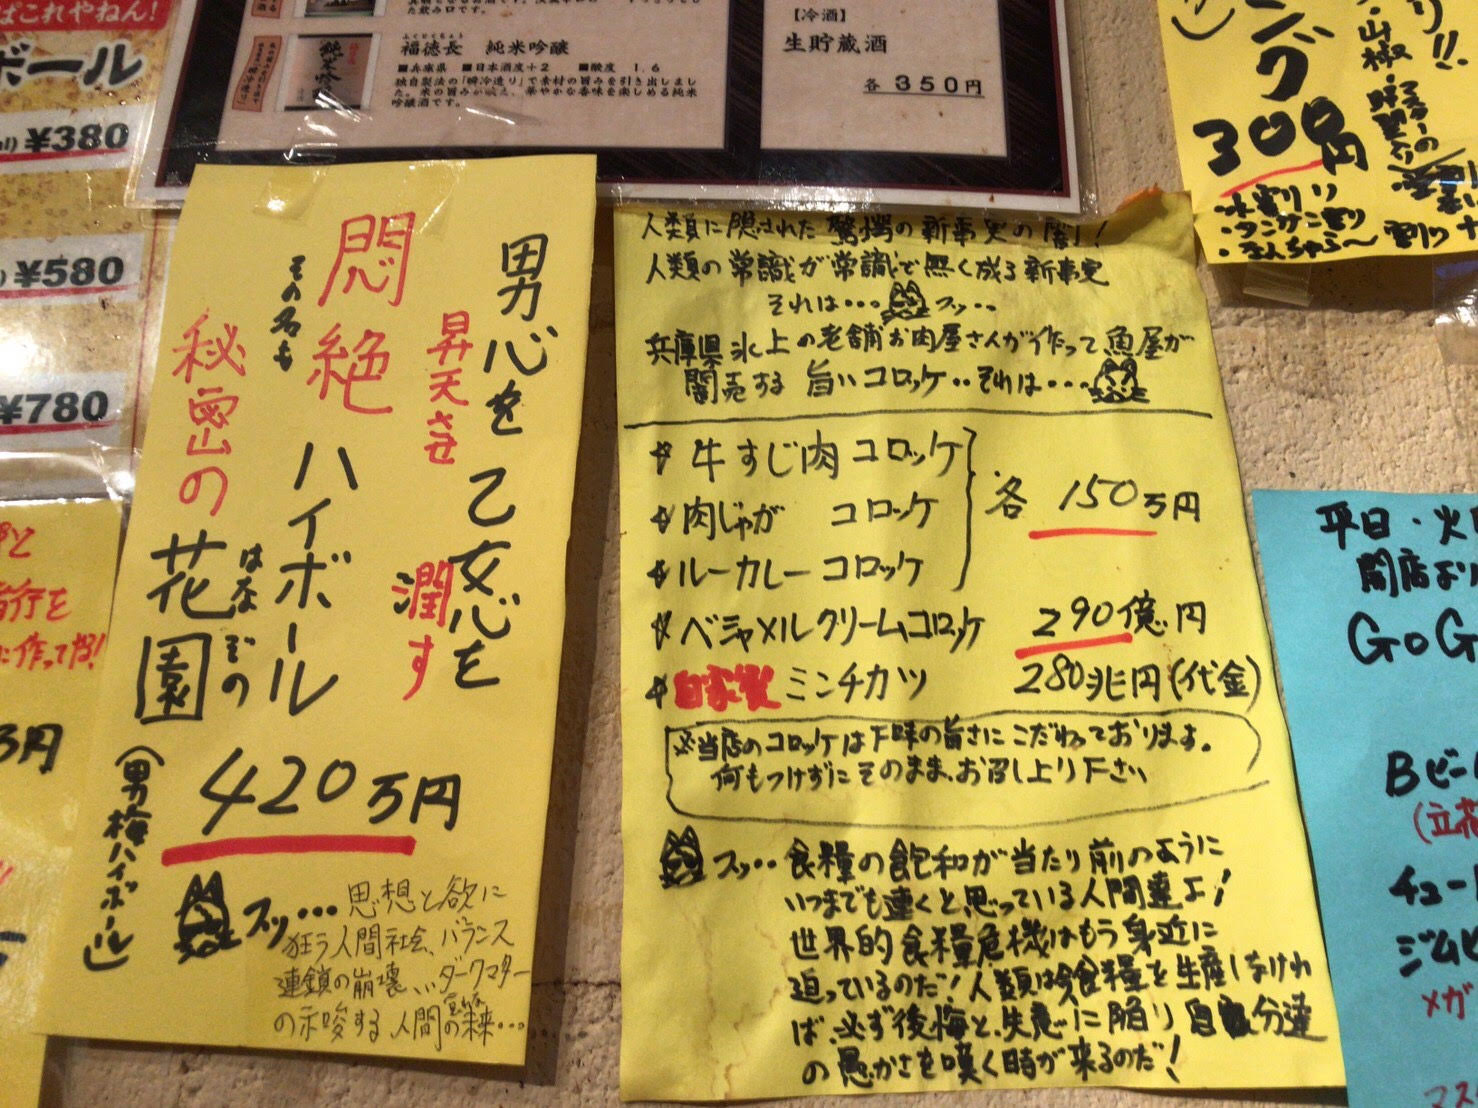 ばこれやねん!
ボール
¥380
¥580
¥780
福徳長 純米吟醸
■兵庫県 ■日本酒度+2 ■酸度 1.6
独自製法の「瞬冷造り」で素材の旨みを引き出しまし
た。米の旨みが映え、華やかな香味を楽しめる純米
吟醸酒です。
【冷酒】
生貯蔵酒
各 350円
300円
・水割り
・タンサン割り
男心を
昇天させ
乙女心を
潤す
その名も
悶絶ハイボール
秘密の花園
はなぞの
420万円
(男梅ハイボール)
スッ…思想と欲に
狂う人間社会、バランス
連鎖の崩壊…ダークマター
の示唆する人間の未来…
人類に隠された驚愕の新事実の闇!
人類の常識が常識で無く成る新事実
それは… スッ…
兵庫県氷上の老舗お肉屋さんが作って魚屋が
闇売する旨いコロッケ‥それは…
牛すじ肉コロッケ
肉じゃが コロッケ
ルーカレーコロッケ
各 150万円
ベシャメルクリームコロッケ 290億円
自家製 ミンチカツ 280兆円(代金)
※当店のコロッケは下味の旨さにこだわっております。
何もつけずにそのまま、お召し上り下さい
スッ…食糧の飽和が当たり前のように
いつまでも速くと思っている人間達よ!
世界的食糧危機はもう身近に
迫っているのだ!人類は食糧を生産しなけれ
ば、必ず後悔と失意に陥り自分達
の愚かさを嘆く時が来るのだ!
平日・火
開店より
GoG
Bビー
チュー
ジムビ
メガ